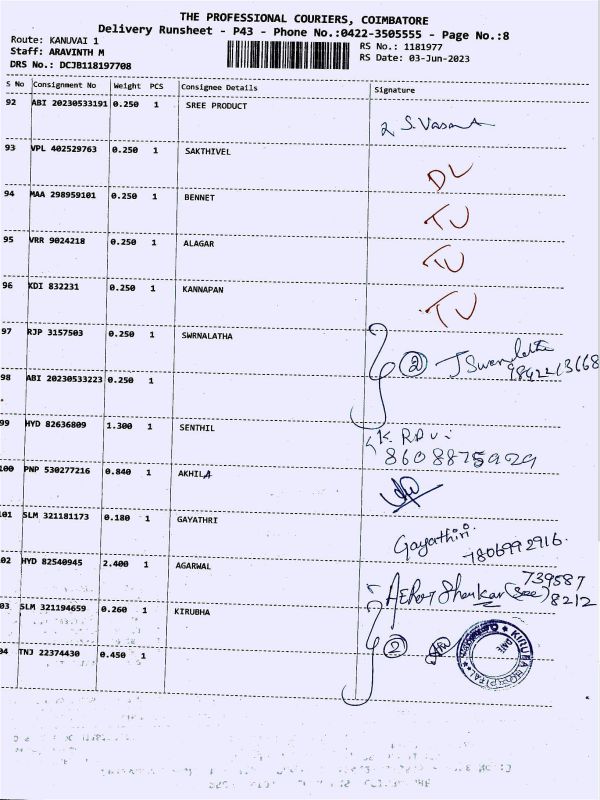 THE PROFESSIONAL COURIERS, COIMBATORE
Delivery Runsheet - P43 - Phone No.:0422-3505555 - Page No.:8
Route: KANUVAI 1
Staff: ARAVINTH M
DRS No.: DCJB118197708
RS No.: 1181977
RS Date: 03-Jun-2023
S No Consignment No Weight PCS Consignee Details Signature
92 ABI 20230533191 0.250 1 SREE PRODUCT
93 VPL 402529763 0.250 1 SAKTHIVEL DL
94 MAA 298959101 0.250 1 BENNET TU
95 VRR 9024218 0.250 1 ALAGAR TU
96 KDI 832231 0.250 1 KANNAPAN TU
97 RJP 3157503 0.250 1 SWRNALATHA
2 J Swrnalatha
98 ABI 20230533223 0.250 1
99 HYD 82636809 1.300 1 SENTHIL K. Ravi
8608875929
100 PNP 530277216 0.840 1 AKHILA
101 SLM 321181173 0.180 1 GAYATHRI Gayathiri
7806992916.
02 HYD 82540945 2.400 1 AGARWAL
739587
8212
03 SLM 321194659 0.260 1 KIRUBHA
2
KIRUBA HOSPITAL
DATE
04 TNJ 22374430 0.450 1